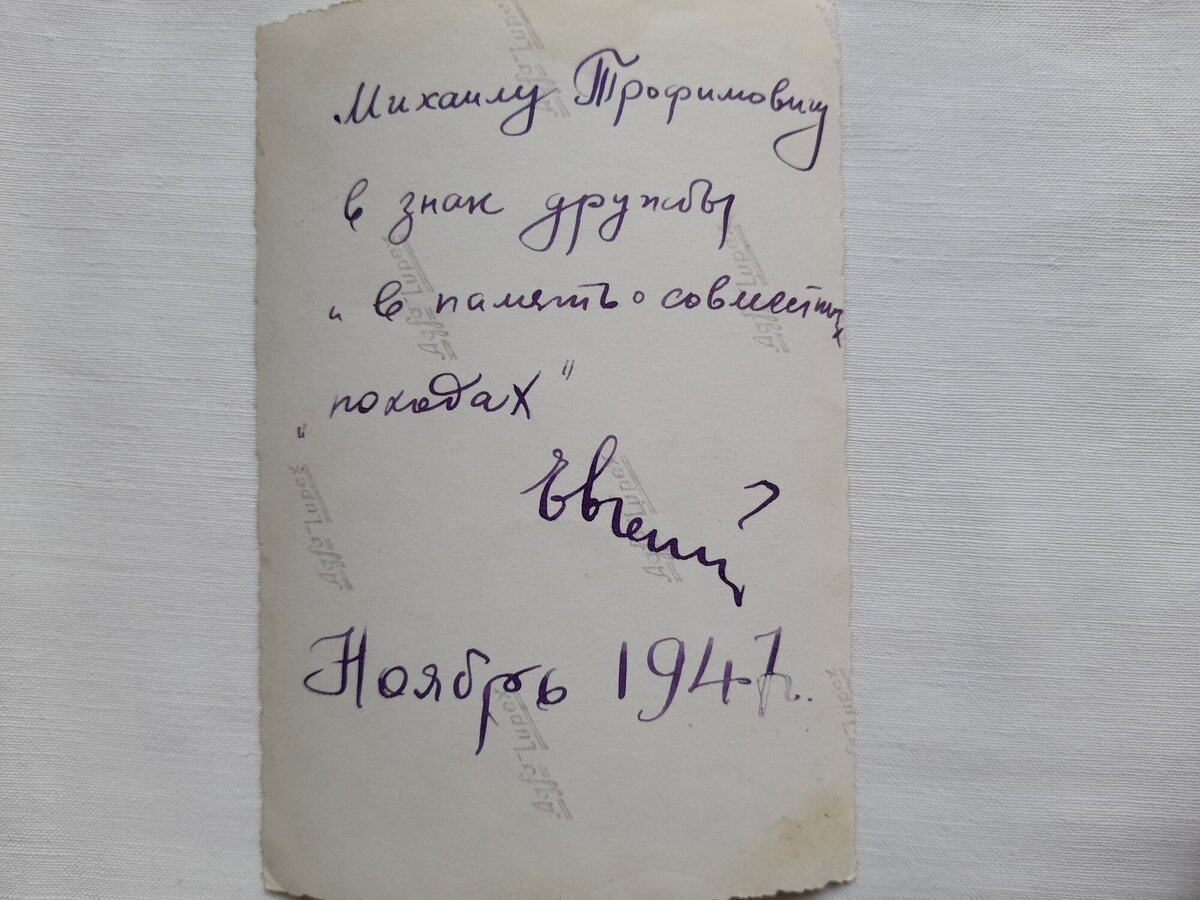 Михаилу Трофимовичу
в знак дружбы
и в память о совместных
"походах"
Евгений
Ноябрь 1947г.
Agfa-Lupex
Agfa-Lupex
Agfa-Lupex
Agfa-Lupex
Agfa-Lupex
Agfa-Lupex